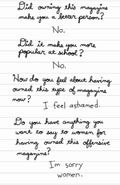 Did owning this magazine
make you a better person?
No.
Did it make you more
popular at school?
No.
How do you feel about having
owned this type of magazine
now?
I feel ashamed.
Do you have anything you
want to say to women for
having owned this offensive
magazine?
I'm sorry
women.